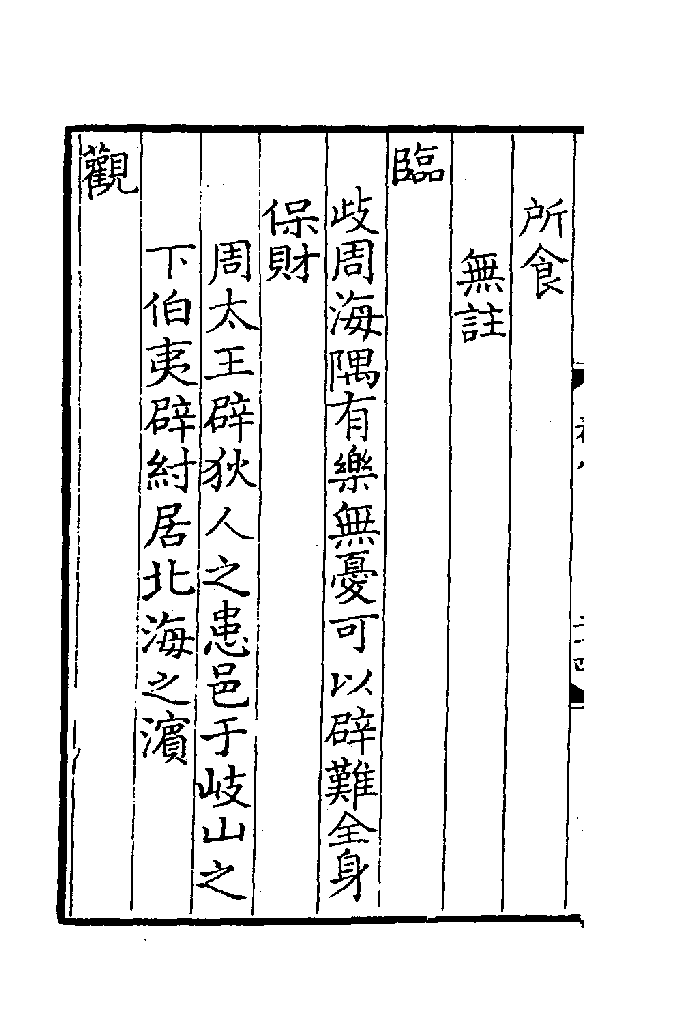 所食
無註
臨
歧周海隅有樂無憂可以辟難全身
保財
周太王辟狄人之患邑于岐山之
下伯夷辟紂居北海之濱
觀